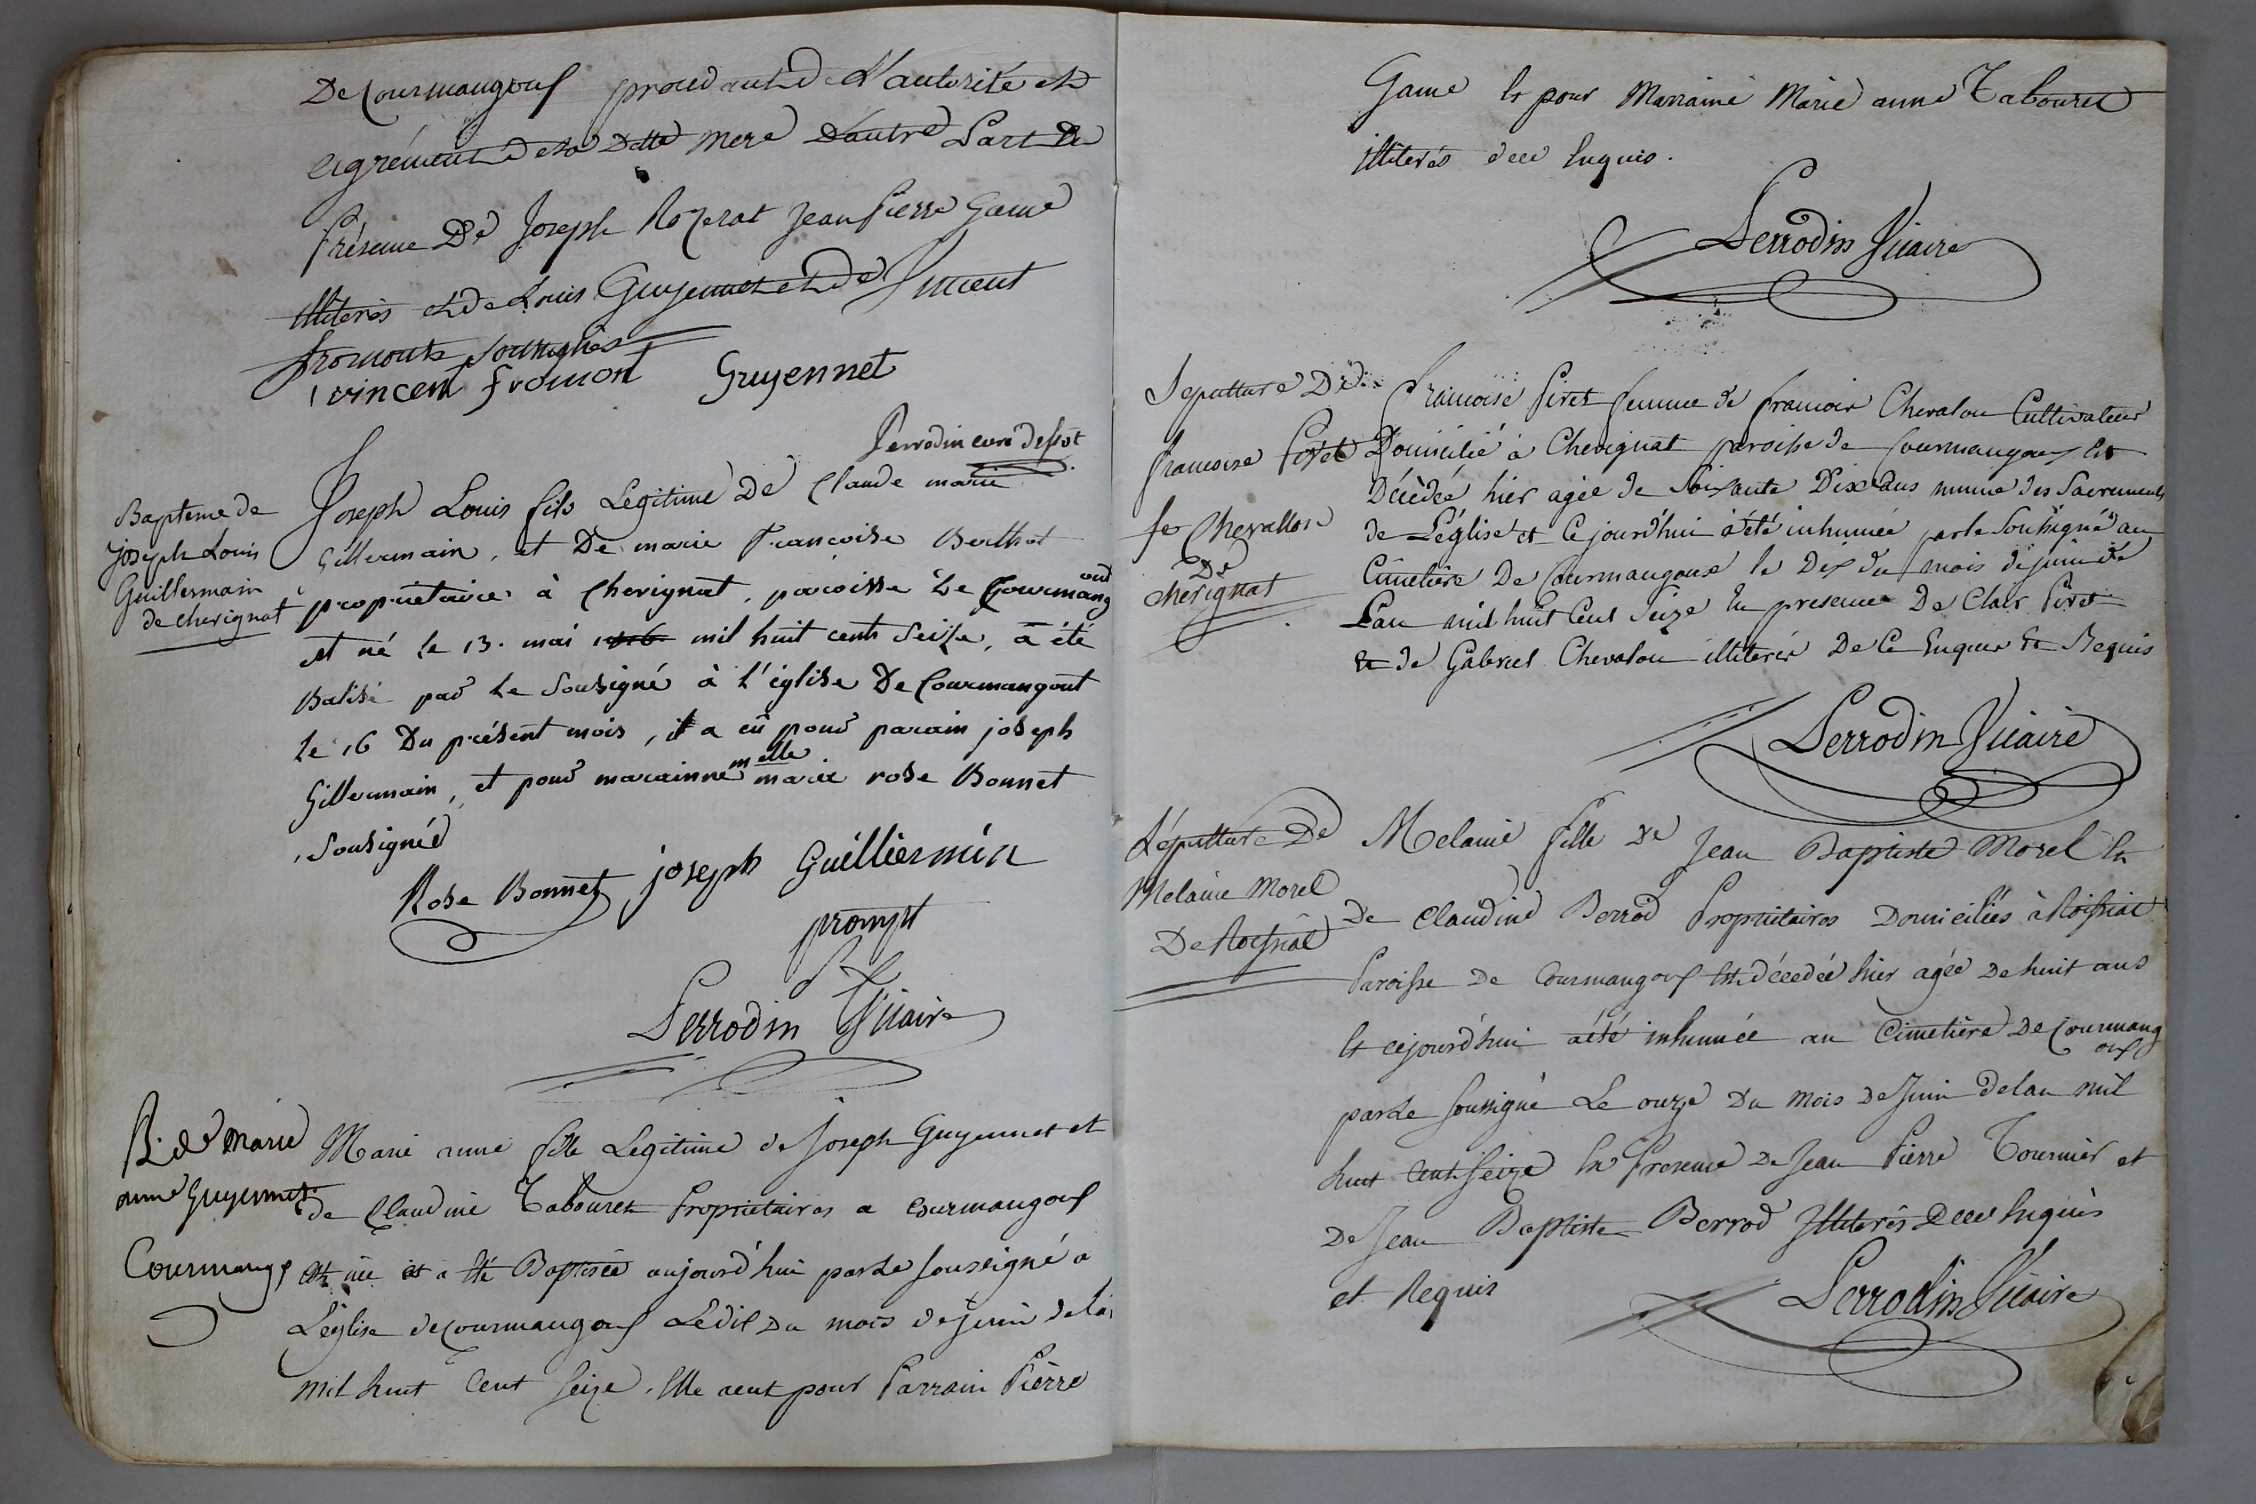 De Courmangoux procedant de L'autorité et
agrément de sa Ditte mere D'autre Part En
Présence De Joseph Rozerat Jean Pierre Game
illiterés et de Louis Guyennet et De Vincent
fromont soussignés
vincent fromont Guyennet
Perrodin curé desst
Bapteme de
joseph Louis
Guillermain
de cherignat
Joseph Louis fils Legitime De Claude marie
Gillermain, et De marie Francoise Berthet
propriétaires à Cherignat, paroisse De Courmang
oud
est né le 13. mai mil huit cents Seize, a été
Batisé par Le Sousigné à l'église De Courmangout
le 16 Du présent mois, il a eû pour parain joseph
Gillermain, et pour marainne melle marie rose Bonnet
, Sousignéd
Rose Bonnet joseph Guilliermin
prompt
Perrodin Vicaire
B. de Marie
anne Guyennet
Courmangx
Marie anne fille Legitime de Joseph Guyennet et
de Claudine Tabouret Propriétaires a Courmangoux
est née et a été Baptisée aujourd'hui par Le soussigné a
L'église de Courmangoux Le dix du mois de Juin de l'a
mil huit Cent Seize. Elle a eut pour Parrain Pierre
Game Et pour Marraine Marie anne Tabouret
illiterés de ce Enquis.
Perrodin Vicaire
Sepulture De
francoise Piret
fe Chevallon
De
cherignat
francoise Piret femme de francois Chevalon Cultivateur
Domicilié à Cherignat paroisse de Courmangoux Est
Décèdée hier agée de Soixante Dix ans munie des Sacrements
de L'église et Ce jourd'hui a été inhumée par le Soussigné au
Cimetière De Courmangoux le Dix du mois de juin de
L'an mil huit Cent Seize En presence De Clair Piret
Et de Gabriel Chevalon illiterés De Ce Enquis Et Requis
Perrodin Vicaire
Sépulture De
Melanie Morel
De Roissiat
Melanie fille De Jean Baptiste Morel Et
De Claudine Berrod Propriétaires Domiciliés à Roissiat
Paroisse De Courmangoux Est décedée hier agée De huit ans
Et cejourd'hui a été inhumée au Cimetière De Courmang
oux
par Le soussigné Le onze Du mois De Juin de l'an mil
huit Cent Seize En Presence De Jean Pierre Tournier et
De Jean Baptiste Berrod Illiterés De ce Enquis
et Requis
Perrodin Vicaire